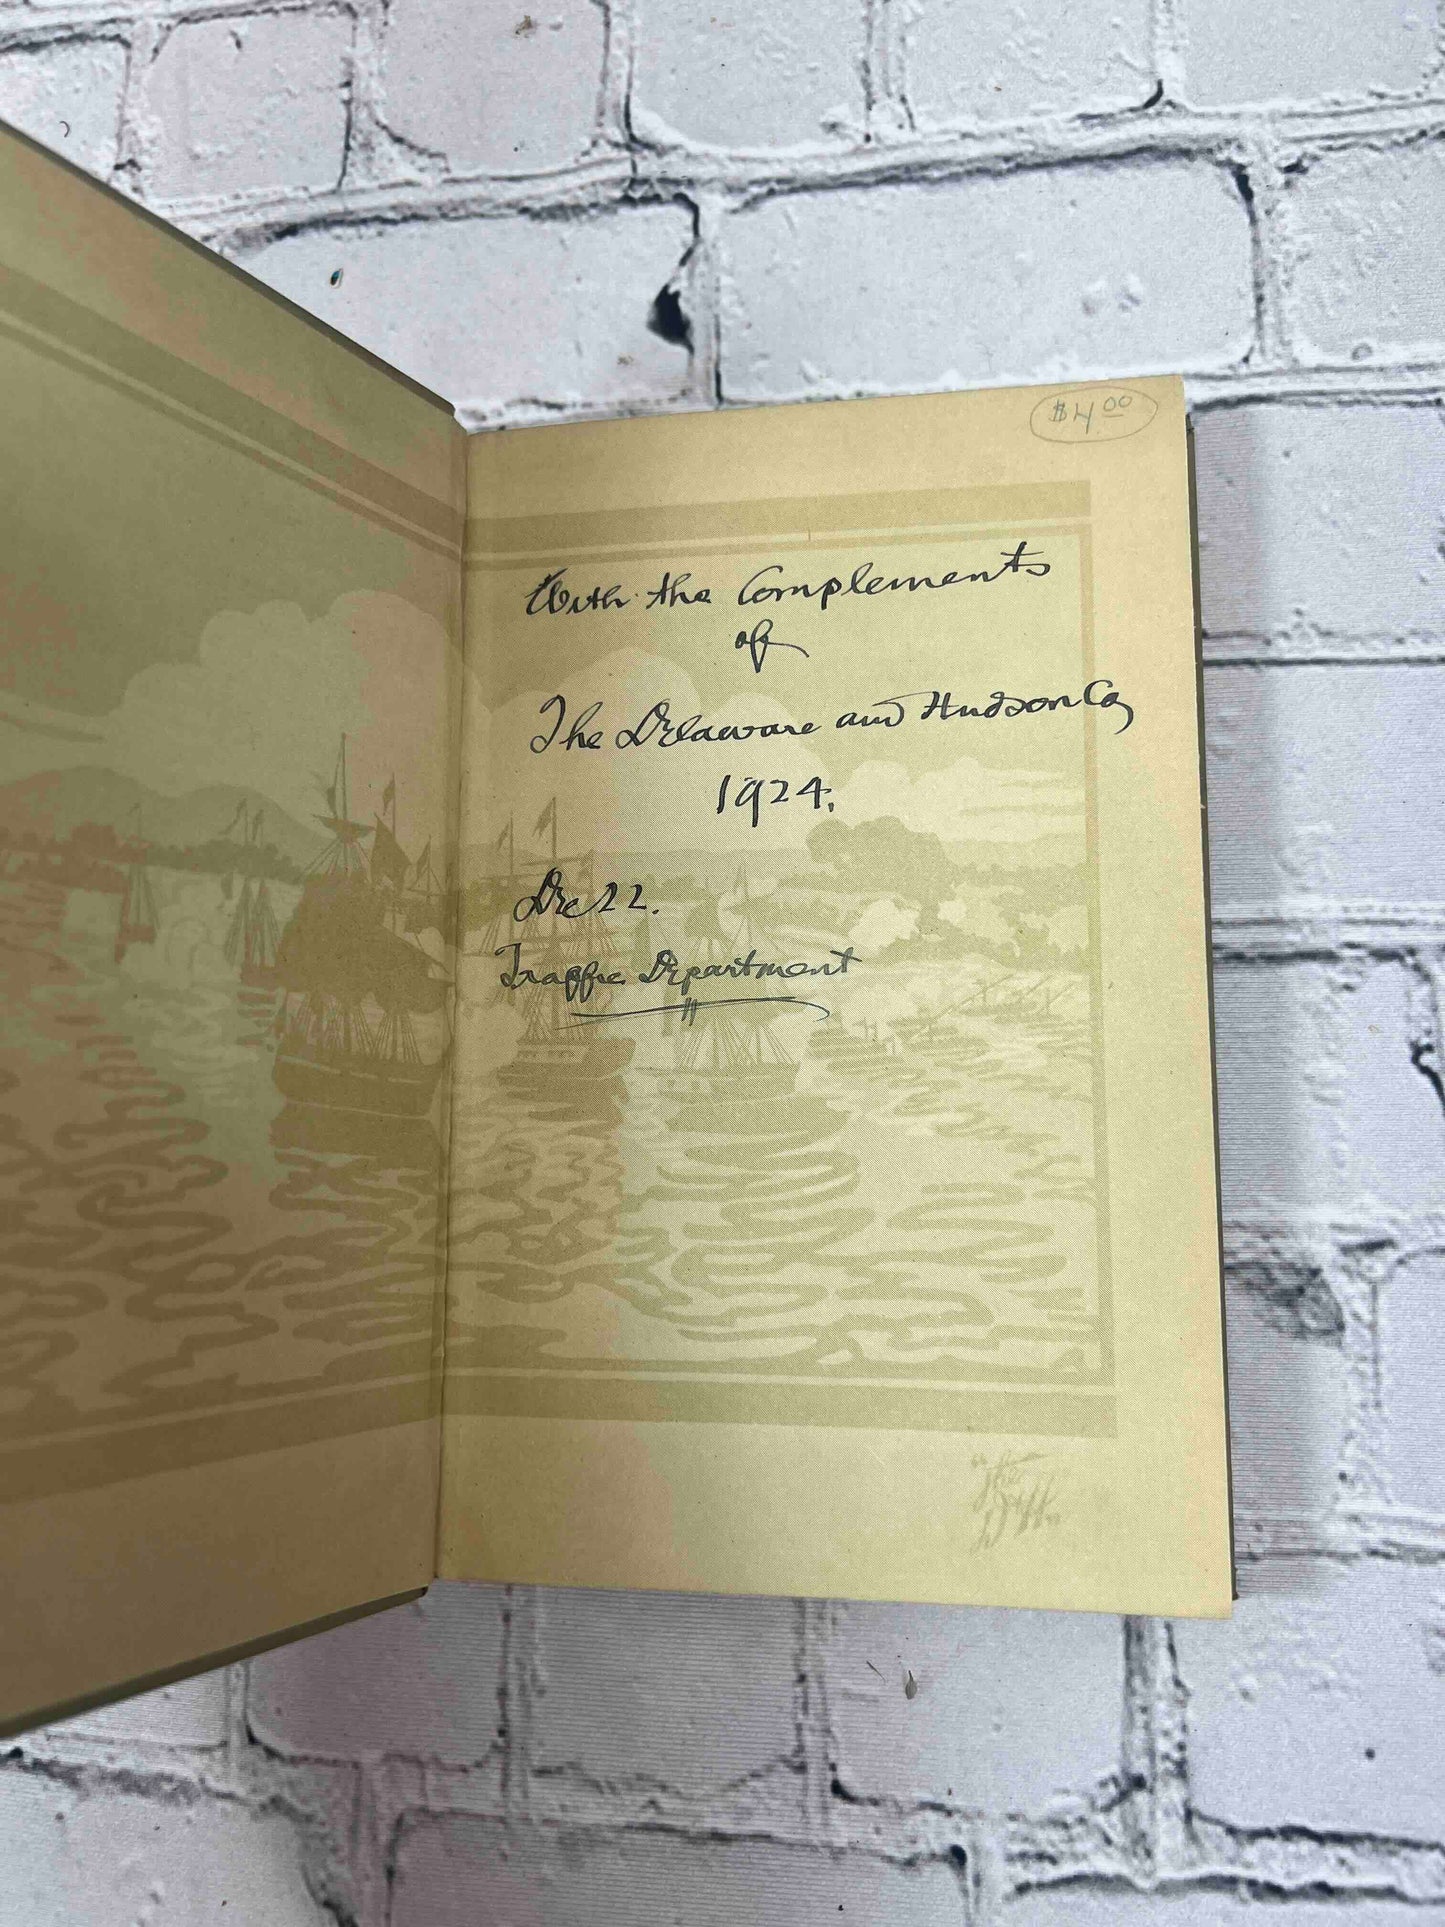 $4.00
With the Complements
of
The Delaware and Hudson Co,
1924.
Dec 22.
Traffic Department
"The
D&H"